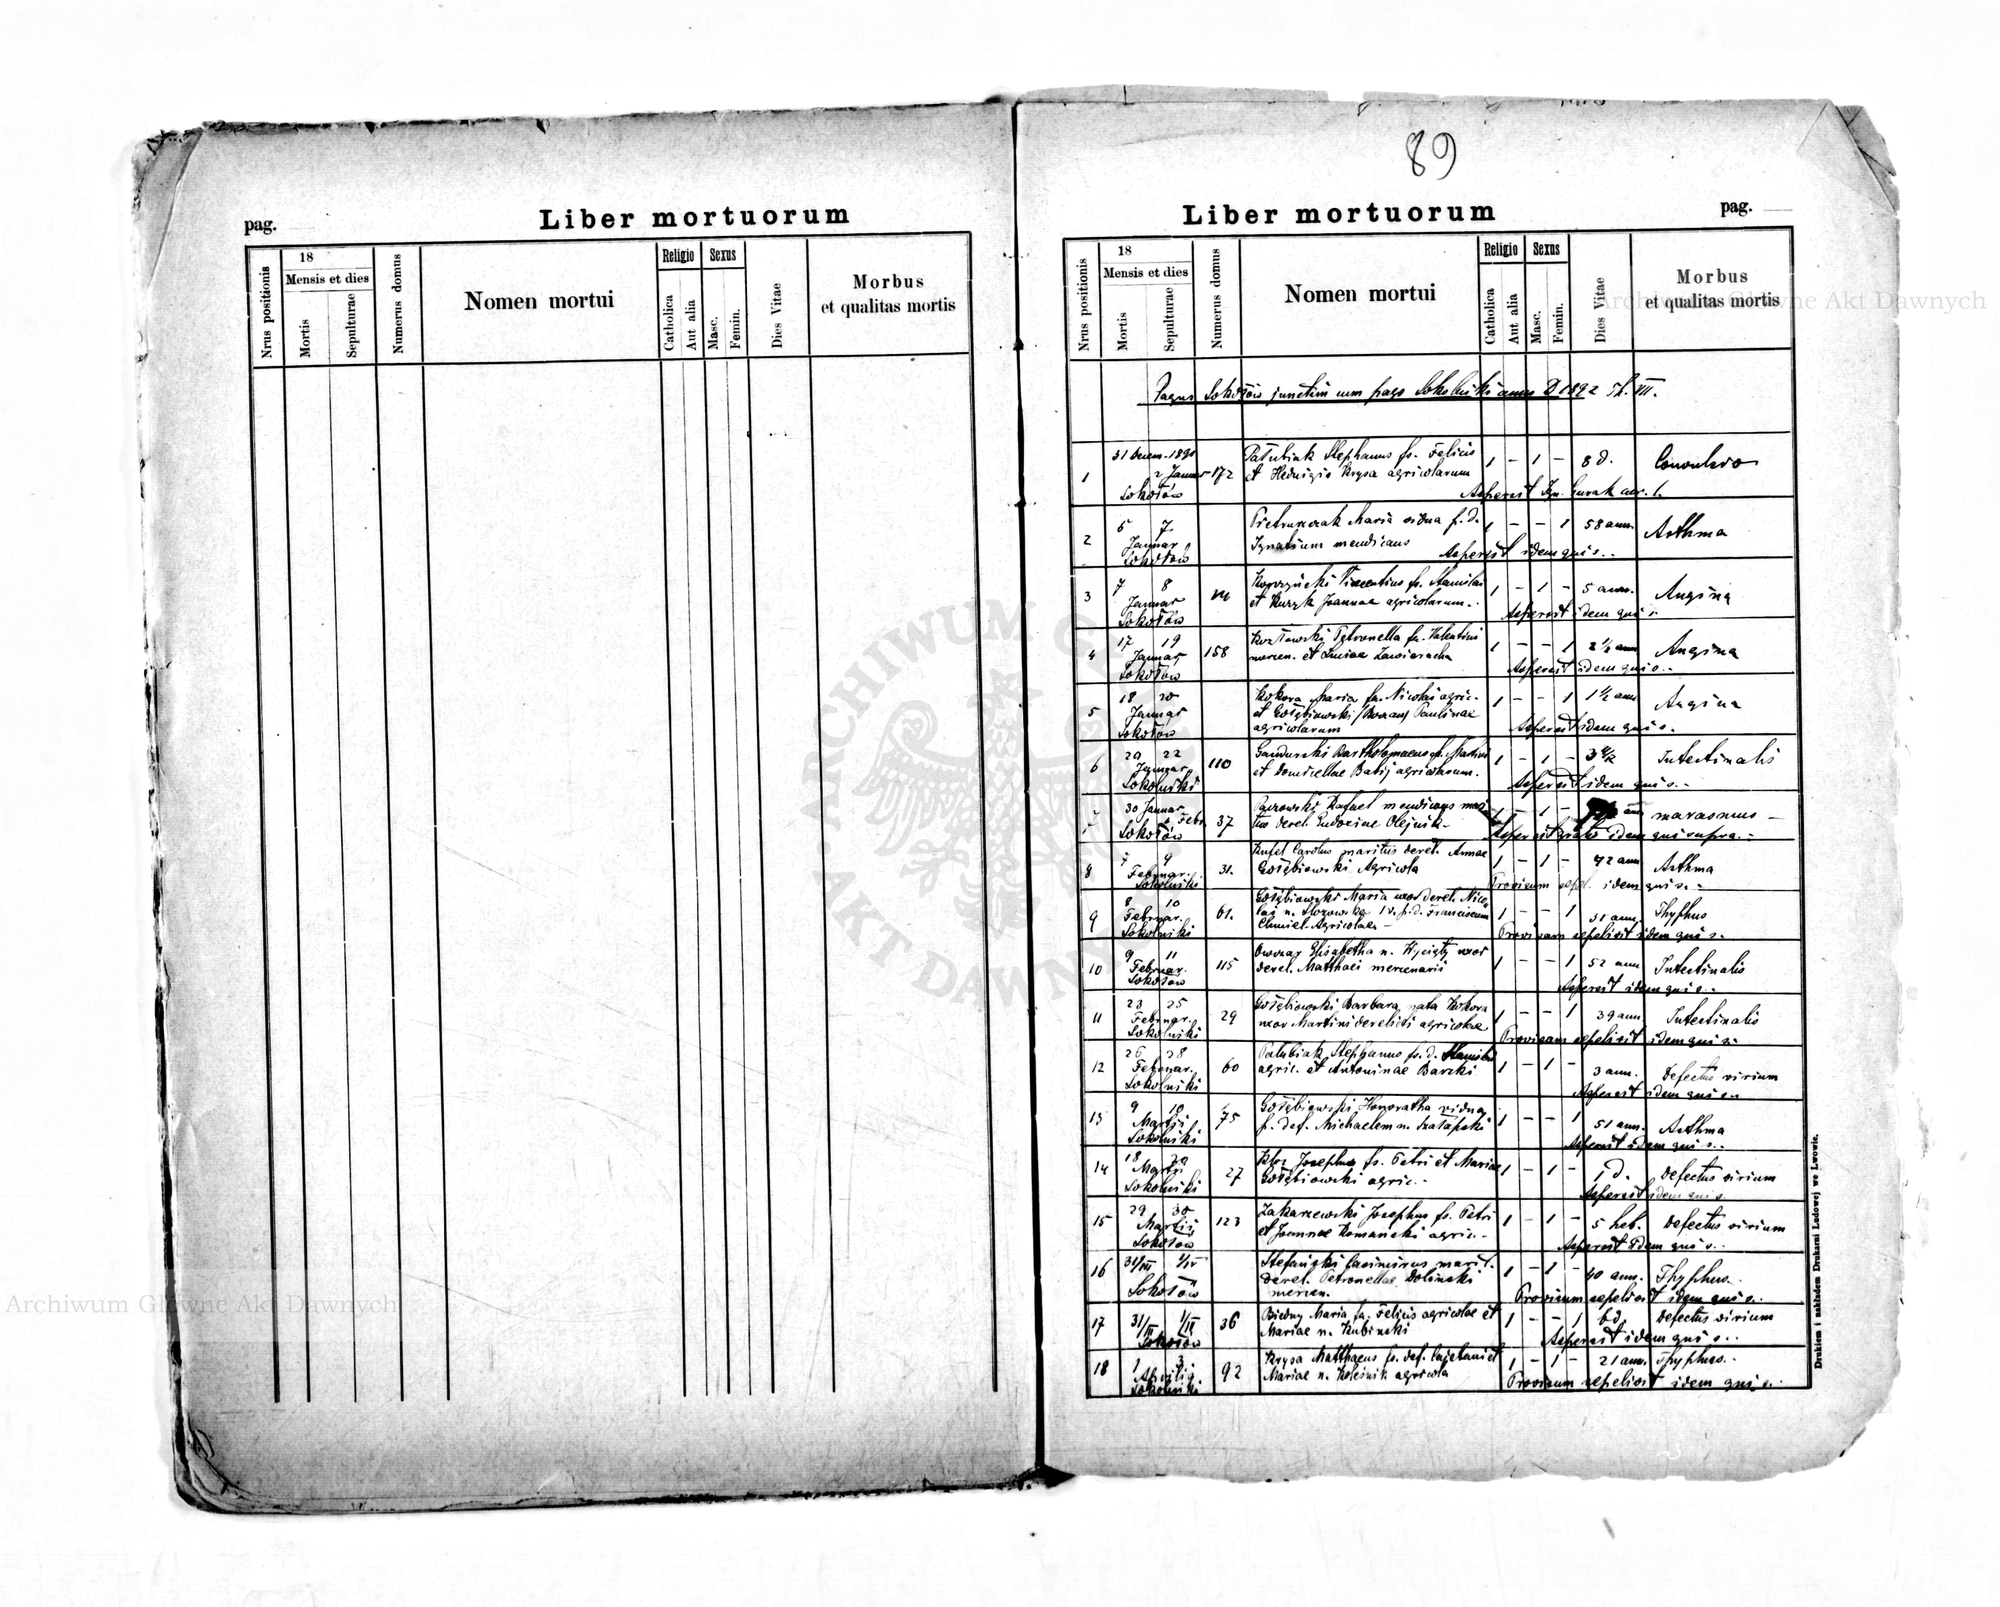 89
pag.
Liber mortuorum
Nrus positionis
18
Mensis et dies
Mortis
Sepulturae
Numerus domus
Nomen mortui
Religio
Catholica
Aut alia
Sexus
Masc.
Femin.
Dies Vitae
Morbus
et qualitas mortis
Liber mortuorum
pag.
Nrus positionis
18
Mensis et dies
Mortis
Sepulturae
Numerus domus
Nomen mortui
Religio
Catholica
Aut alia
Sexus
Masc.
Femin.
Dies Vitae
Morbus
et qualitas mortis
Pagus Sokołów junctim cum pago Sokolniki anno D 1892 Th. VII.
1 2 Januar 172 Stephanus fs. Felicis 1 – 1 – 8 d.
et Hedvigis Krysa agricolarum
Sokołów
Aspersit
2 5 7. Maria vidua p. d. 1 – – 1 58 ann. Asthma
Januar Ignatium mendicans
Sokołów Aspersit idem qui s.
3 7 8 Vincentius fs. Stanislai 1 – 1 – 5 ann. Angina
Januar et Joannae agricolarum
Sokołów Aspersit idem qui s.
4 17 19 158 Kozłowski Petronella fa. Valentini 1 – – 1 2 1/2 ann Angina
Januar mercen. et Luciae
Sokołów Aspersit idem qui s.
5 18 20 Kokora Maria fa. Nicolai agric. 1 – – 1 1 1/2 ann Angina
Januar et Gołębiowski Paulinae
Sokołów agricolarum Aspersit idem qui s.
6 20 22 110 Bartholomaeus fs. 1 – 1 – Intestinalis
Januar et Domicellae agricolarum.
Sokolniki Aspersit idem qui s.
7 30 Januar 37 Rafael mendicans mari 1 – 1 – ann marasmus –
Febr. tus derel. Eudoxiae Olejnik
Sokołów Aspersit idem qui supra.
8 7 9 31. Carolus maritus derel. Annae 1 – 1 – 42 ann Asthma
Februar. Gołębiowski Agricola
Sokolniki Provisum sepel. idem qui s.
9 8 10 61. Gołębiowski Maria uxor derel. Nico 1 – – 1 51 ann. Thyphus
Februar. lai n. 1 v. p. d. Franciscum
Sokolniki Chmiel Agricolae – Provisam sepelivit idem qui s.
10 9 11 115 Owczar Elisabetha n. uxor 1 – – 1 52 ann Intestinalis
Februar. derel. Matthaei mercenarii
Sokołów Aspersit idem qui s.
11 23 25 29 Gołębiowski Barbara nata Kokora 1 – – 1 39 ann Intestinalis
Februar. uxor Martini derelicti agricolae
Sokolniki Provisam sepelivit idem qui s.
12 26 28 60 Stephanus fs. d. Stanislai 1 – 1 – 3 ann. Defectus virium
Februar. agric. et Antoninae Barski
Sokolniki Aspersit idem qui s.
13 9 10 75 Gołębiowski Honoratha vidua 1 – – 1 51 ann. Asthma
Martii p. def. Michaelem n.
Sokolniki Aspersit idem qui s.
14 18 20 27 Josephus fs. Petri et Mariae 1 – 1 – 1 d. Defectus virium
Martii Gołębiowski agric.
Sokolniki Aspersit idem qui s.
15 29 30 123 Zakarzewski Josephus fs. Petri 1 – 1 – 5 heb. Defectus virium
Martii et Joannae Romański agric.
Sokołów Aspersit idem qui s.
16 31/III 1/IV Stefański Casimirus marit. 1 – 1 – 40 ann. Thyphus.
derel. Petronellae Doliński
Sokołów mercen. Provisum sepelivit idem qui s.
17 31/III 1/IV 36 Biedny Maria fa. Felicis agricolae et 1 – – 1 6 d. Defectus virium
Sokołów Mariae n. Kubinski Aspersit idem qui s.
18 1 3 92 Krysa Matthaeus fs. def. Cajetani et 1 – 1 – 21 ann. Thyphus.
Aprilis Mariae n. Koleśnik agricola
Sokolniki Provisum sepelivit idem qui s.
Drukiem i nakładem Drukarni Ludowej we Lwowie.
Archiwum Główne Akt Dawnych
Archiwum Główne Akt Dawnych
ARCHIWUM GŁÓWNE
AKT DAWNYCH